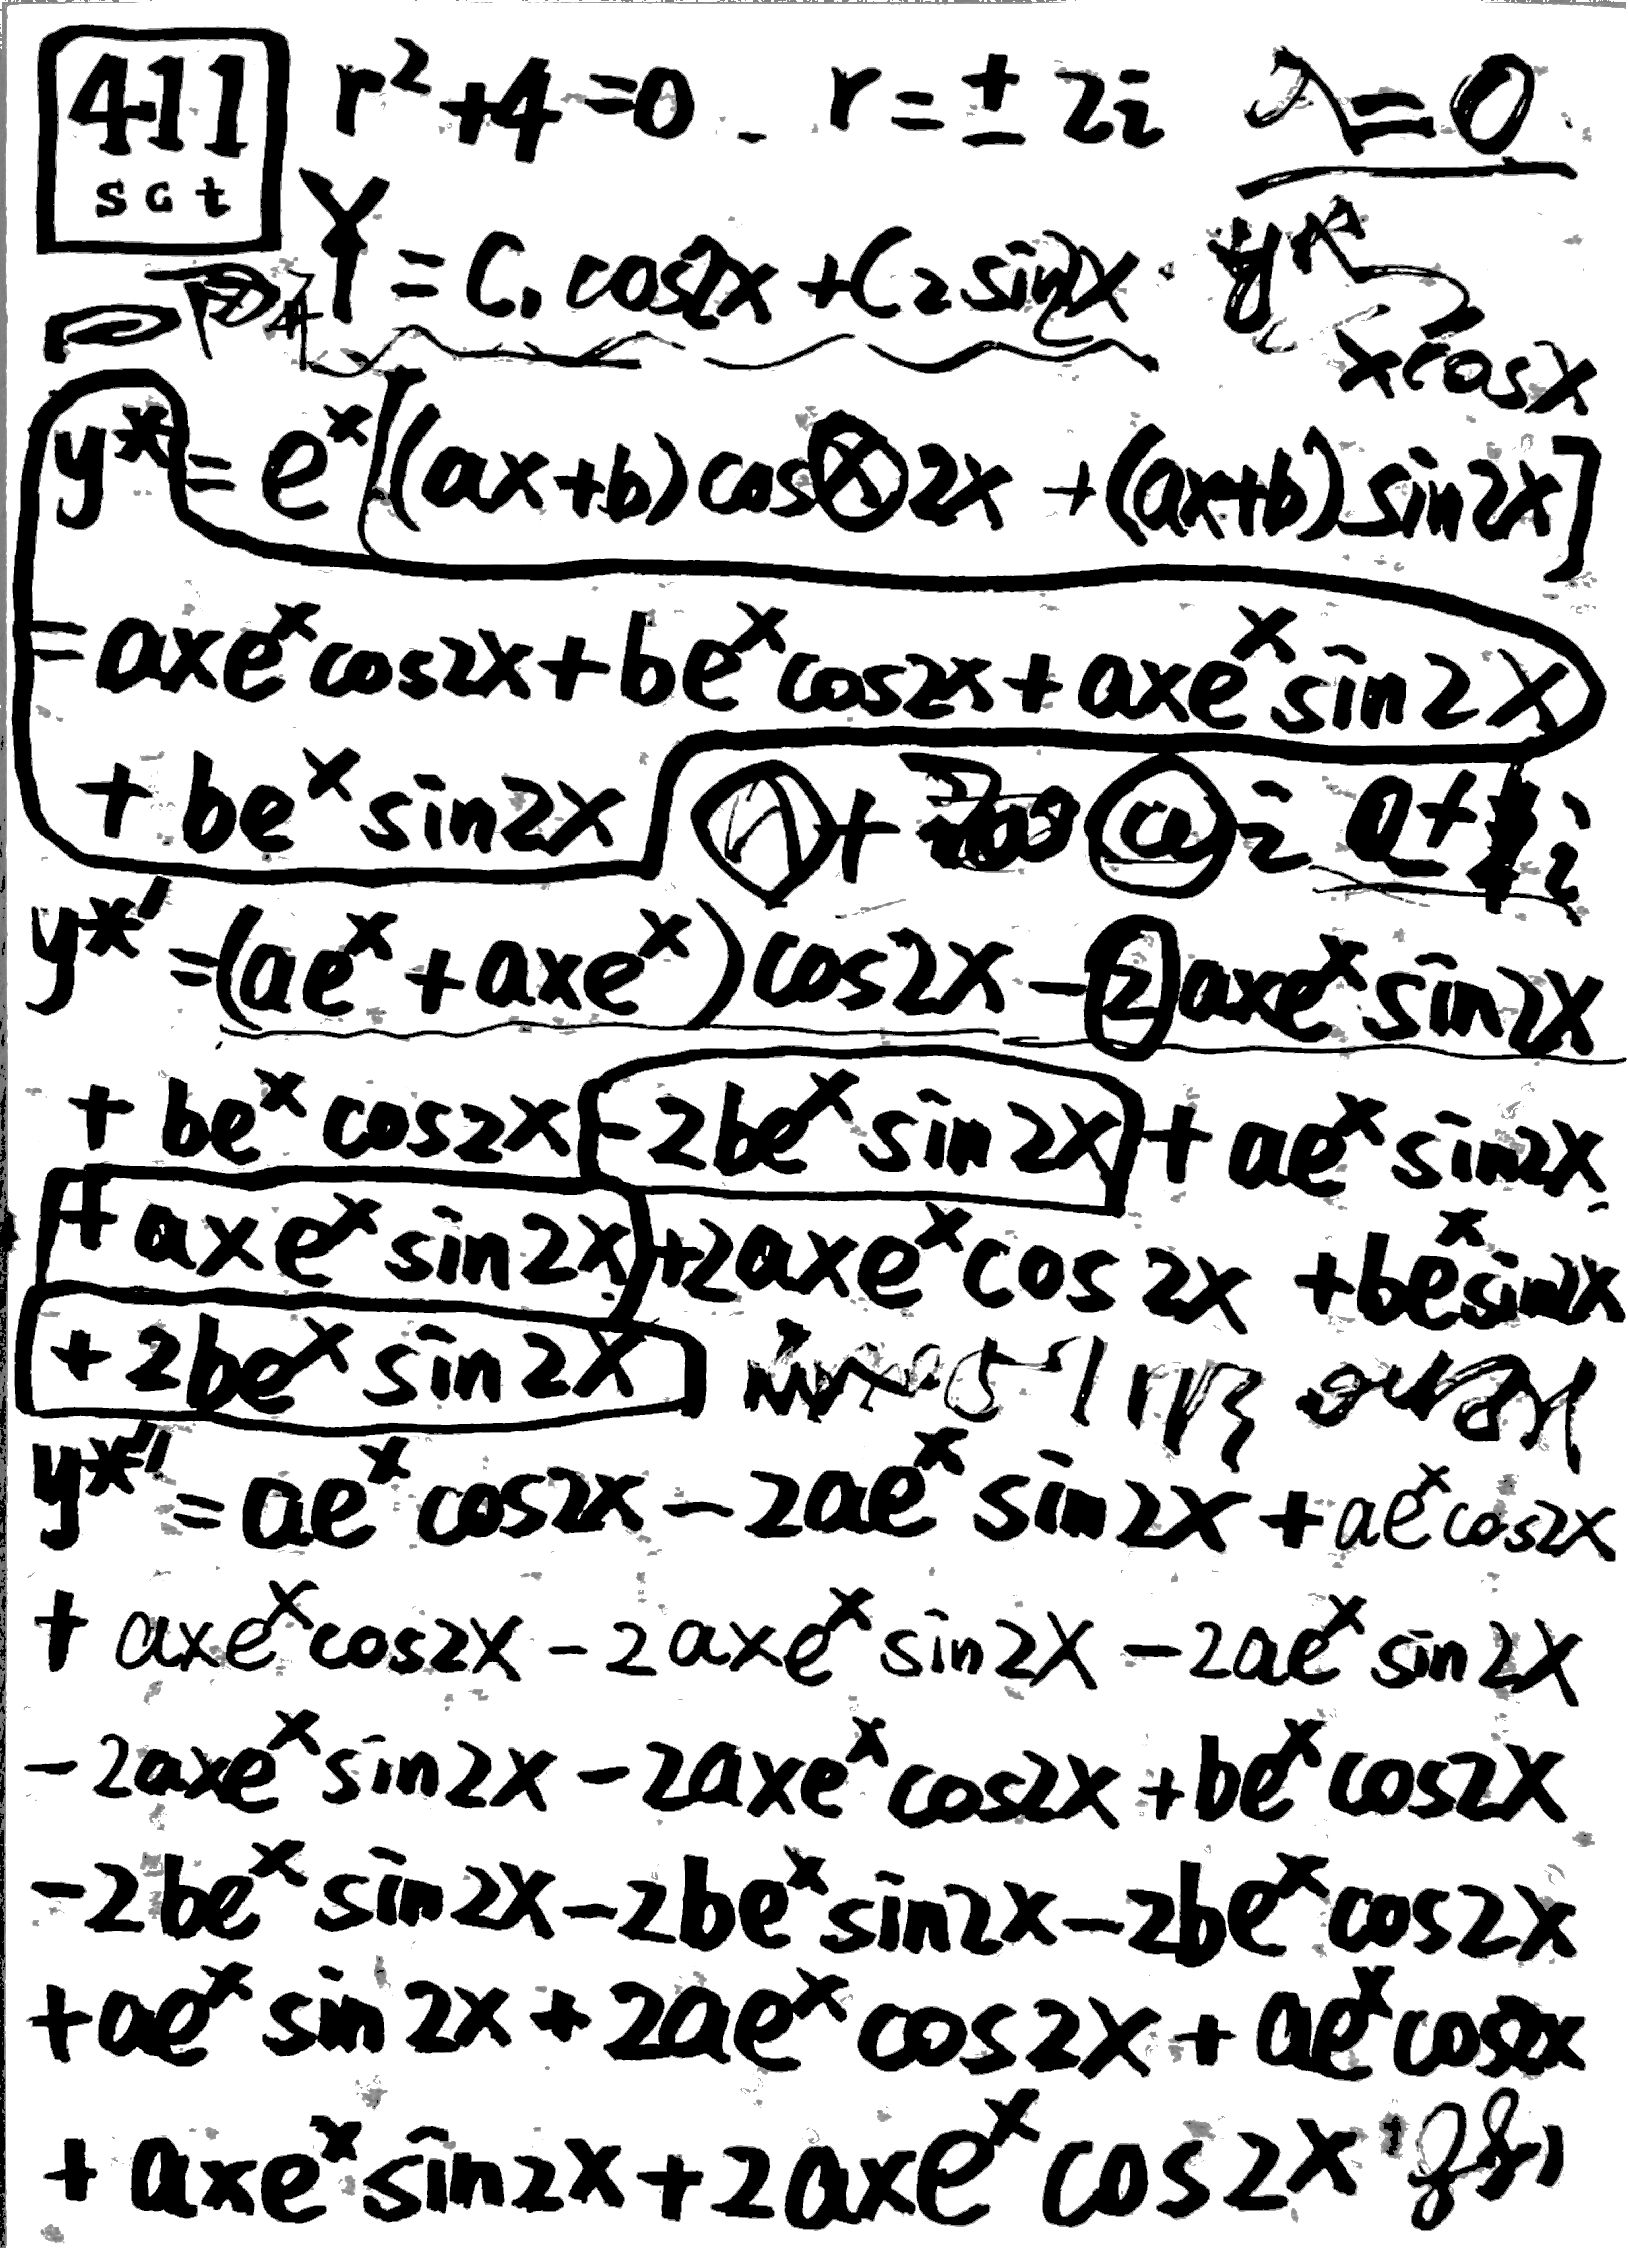 411 r²+4=0. r=±2i λ=0.
sct
Y=C₁cos2x+C₂sin2x. y*
xcosx
y*=eˣ[(ax+b)cos2x+(ax+b)sin2x]
=axeˣcos2x+beˣcos2x+axeˣsin2x
+beˣsin2x
y*'=(aeˣ+axeˣ)cos2x-2axeˣsin2x
+beˣcos2x-2beˣsin2x+aeˣsin2x
+axeˣsin2x+2axeˣcos2x+beˣsin2x
+2beˣsin2x
y*''=aeˣcos2x-2aeˣsin2x+aeˣcos2x
+axeˣcos2x-2axeˣsin2x-2aeˣsin2x
-2axeˣsin2x-2axeˣcos2x+beˣcos2x
-2beˣsin2x-2beˣsin2x-2beˣcos2x
+aeˣsin2x+2aeˣcos2x+aeˣcos2x
+axeˣsin2x+2axeˣcos2x